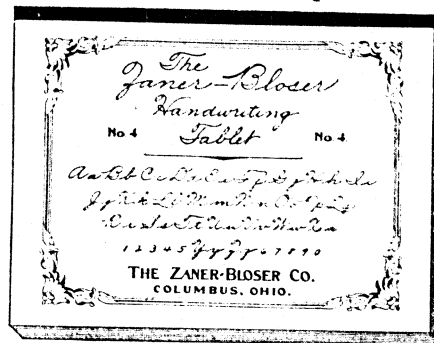 The
Zaner-Bloser
Handwriting
No 4 Tablet No. 4
Aa Bb Cc Dd Ee Ff Gg Hh Ii
Jj Kk Ll Mm Nn Oo Pp Qq
Rr Ss Tt Uu Vv Ww Xx
1 2 3 4 5 Yy Zz 6 7 8 9 0
THE ZANER-BLOSER CO.
COLUMBUS, OHIO.